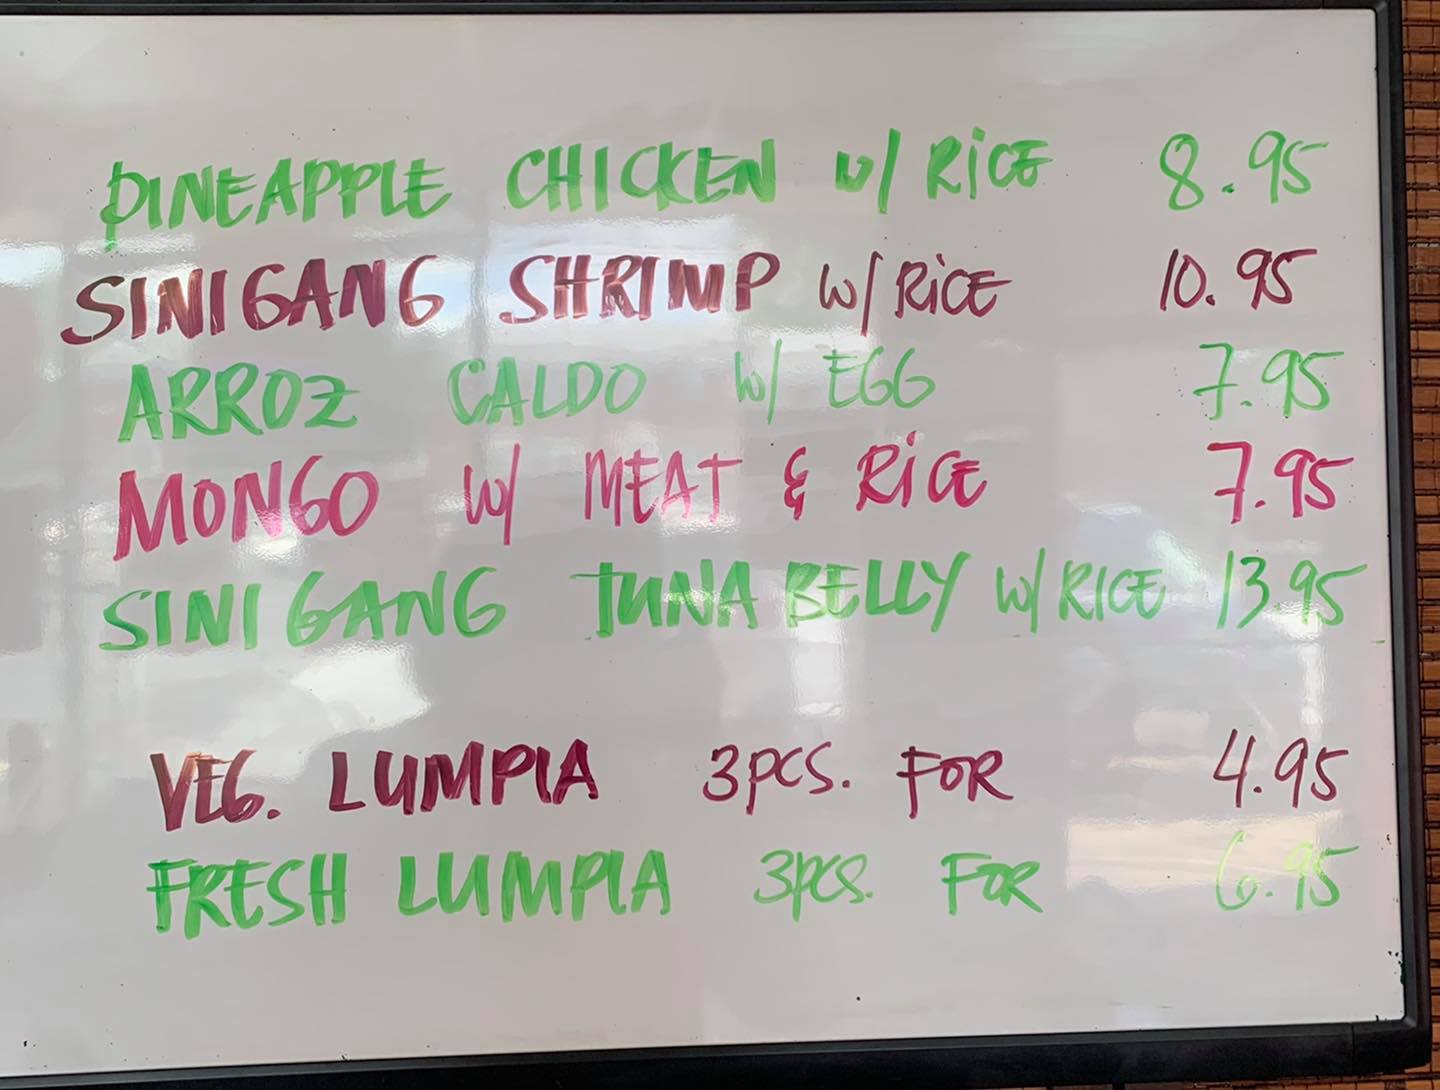 PINEAPPLE CHICKEN w/ RiCE 8.95
SINIGANG SHRIMP w/ RiCE 10.95
ARROZ CALDO w/ EGG 7.95
MONGO w/ MEAT & RiCE 7.95
SINIGANG TUNA BELLY w/ RICE 13.95
VEG. LUMPIA 3pcs. FOR 4.95
FRESH LUMPIA 3pcs. FOR 6.95